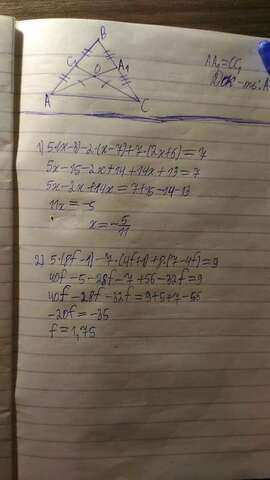 B
AA₁=CC₁
C₁ O A₁
Док-ть: A
A C
1) 5·(x-3)-2·(x-7)+7·(2x+6)=7
5x-15-2x+14+14x+13=7
5x-2x+14x=7+15-14-13
17x=-5
x=-5/17
2) 5·(8f-1)-7·(4f+1)+8·(7-4f)=9
40f-5-28f-7+56-32f=9
40f-28f-32f=9+5+7-56
-20f=-35
f=1,75